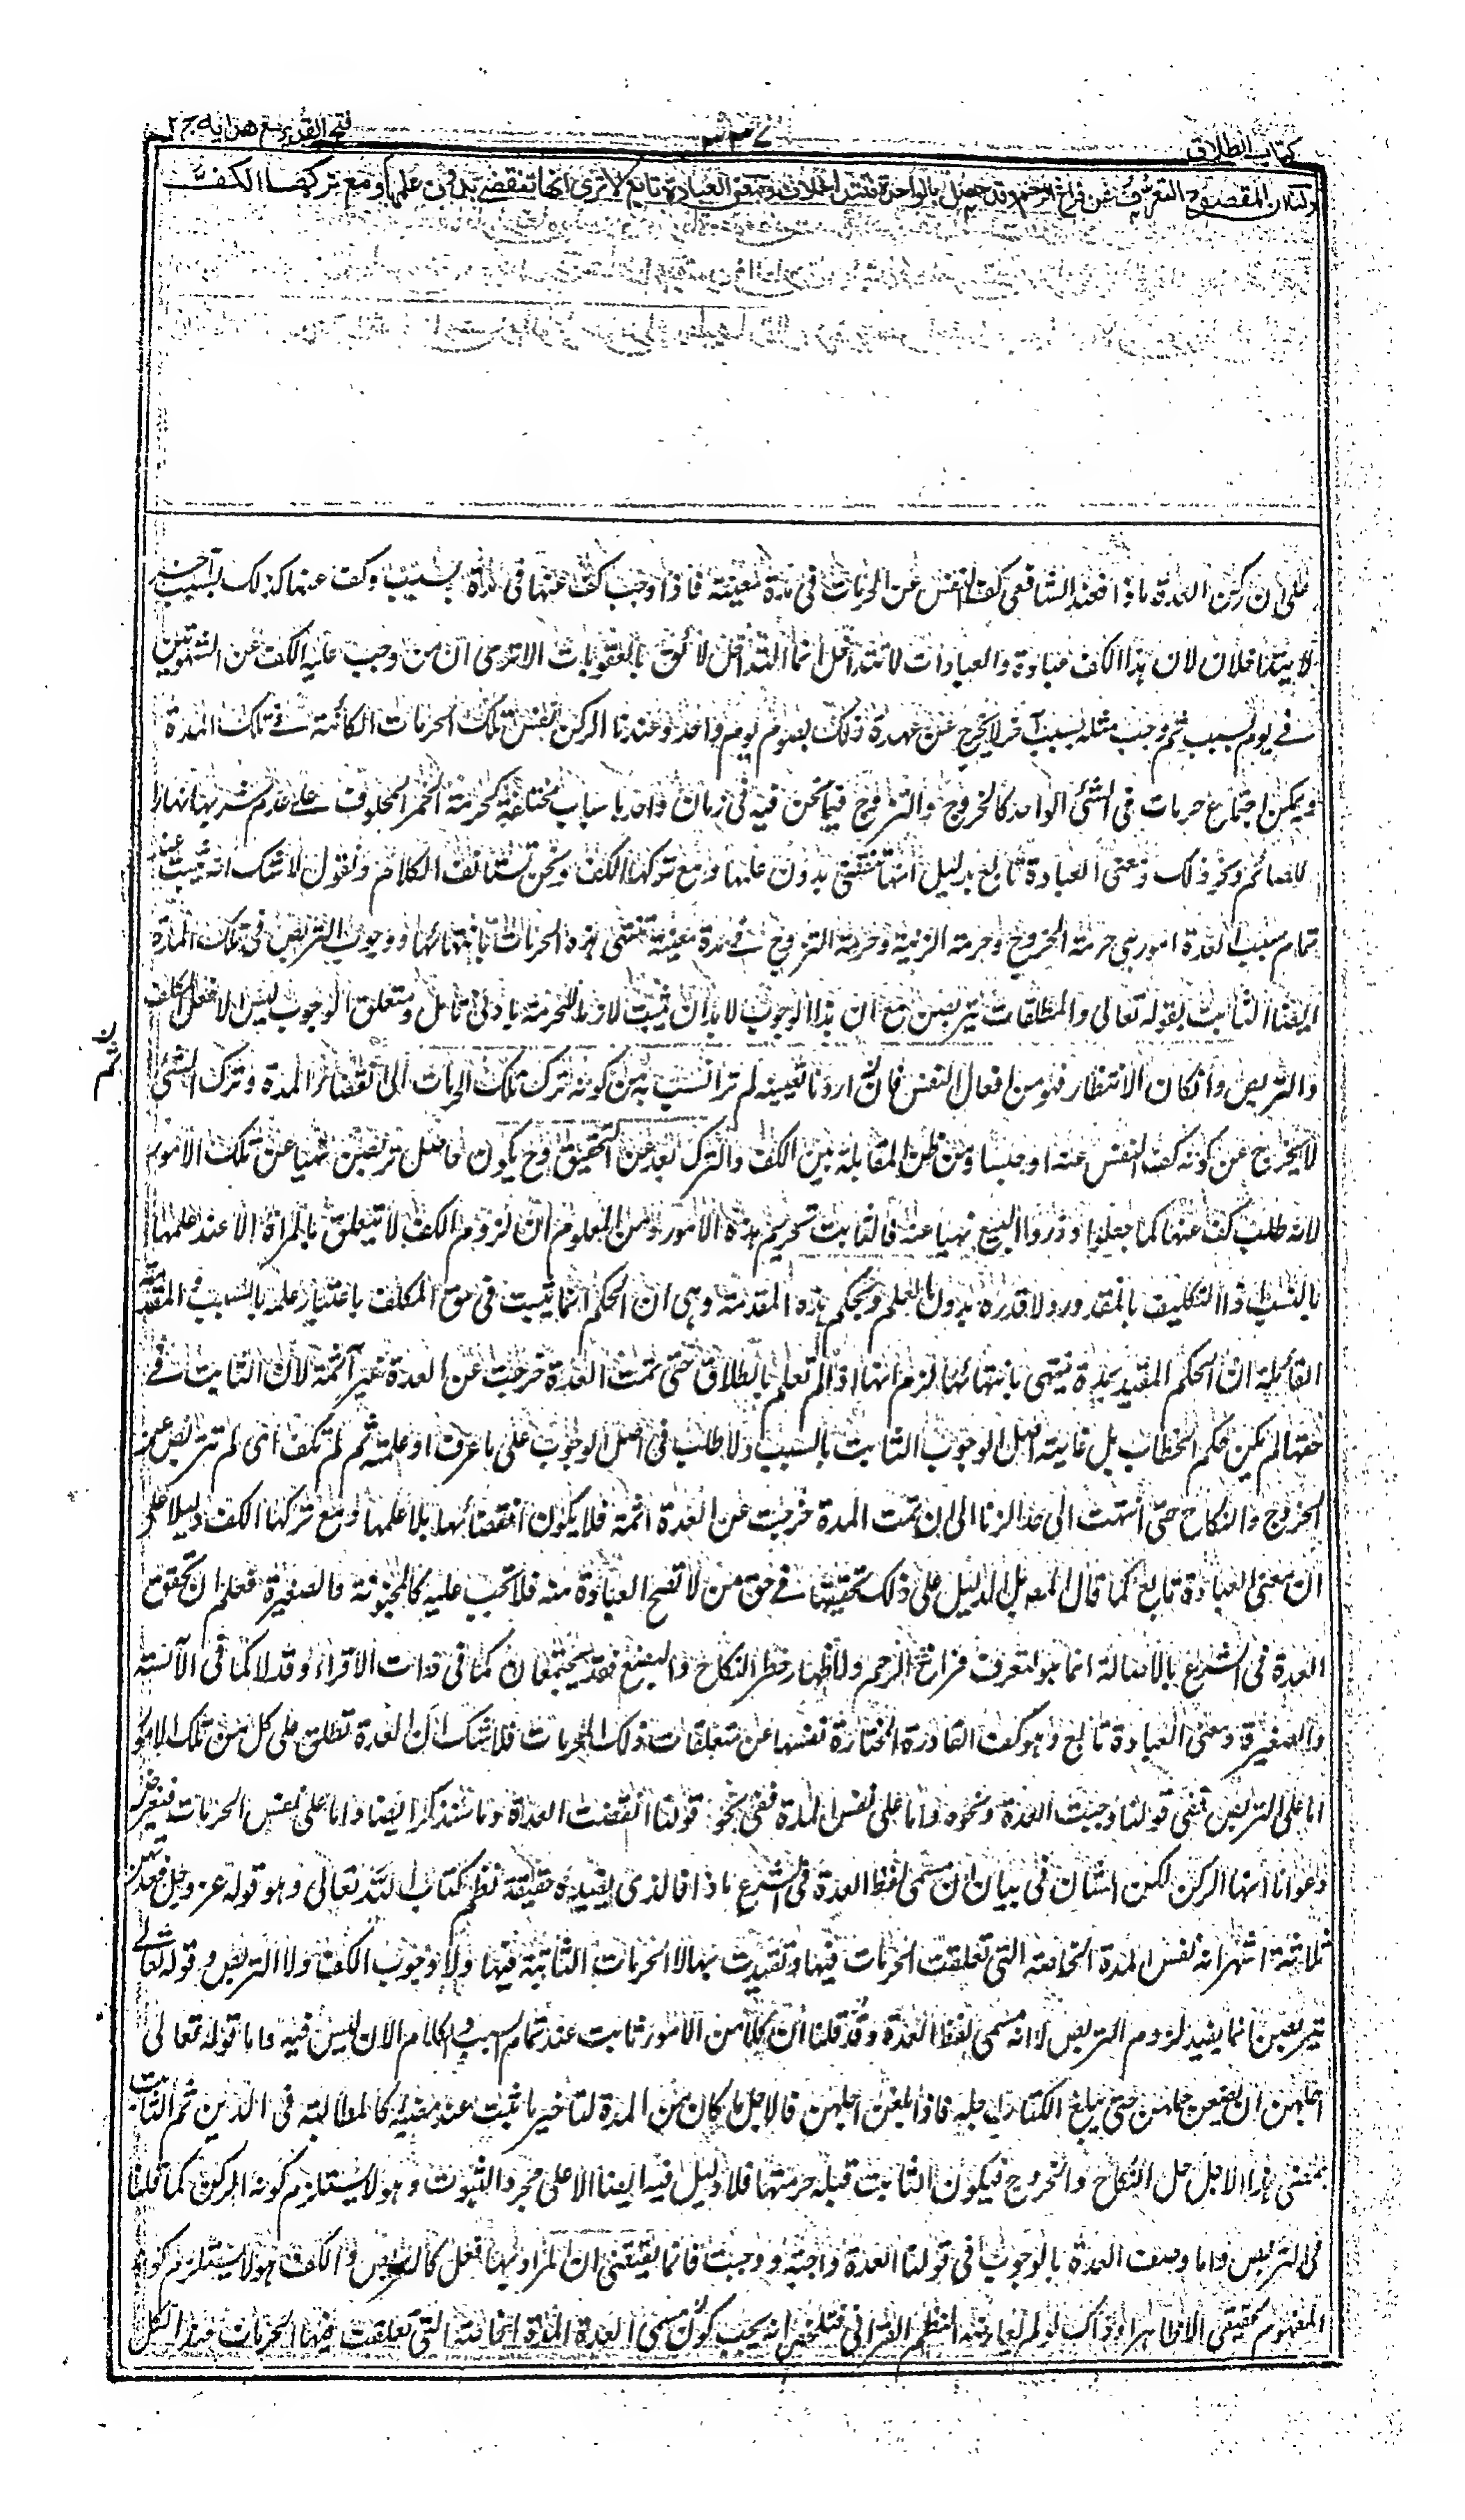 كتاب الطلاق
٣٣٧
فتح القدير مع هدايه ج٢
ولنا ان المقصود التعرف عن فراغ الرحم وقد حصل بالواحدة فتتداخلان ومعنى العبادة تابع الا ترى انها تنقضي بدون علمها ومع تركها الكف
على ان ركن العدة ماذا فعند الشافعي كف النفس عن الحرمات في مدة معينة فاذا وجب كف عنها في مدة بسبب وكف عنها كذلك بسبب آخر
لا يتداخلان لان هذا الكف عبادة والعبادات لا تتداخل انما التداخل لائق بالعقوبات الا ترى ان من وجب عليه الكف عن الشهوتين
في يوم بسبب ثم وجب مثله بسبب آخر لا يخرج عن عهدة ذلك بصوم يوم واحد وعندنا الركن نفس تلك الحرمات الكائنة في تلك المدة
ويمكن اجتماع حرمات في الشئ الواحد كالخروج والتزوج فيما نحن فيه في زمان واحد باسباب مختلفة كحرمة الخمر المحلوف على عدم شربها نهارا
للصائم ونحو ذلك ومعنى العبادة تابع بدليل انها تنقضي بدون علمها ومع تركها الكف ونحن نستانف الكلام ونقول لا شك انه يثبت عند
تمام سبب العدة امور هي حرمة الخروج وحرمة الزينة وحرمة التزوج في مدة معينة تنتهي هذه الحرمات بانتهائها ووجوب التربص في تلك المدة
ايضا الثابت بقوله تعالى والمطلقات يتربصن مع ان هذا الوجوب لا بد ان يثبت لازما للحرمة بادنى تامل ومتعلق الوجوب ليس الا فعل المكلف
والتربص وان كان الانتظار فهو من افعال النفس فان اردنا تعيينه لم تر انسب به من كونه ترك تلك الحرمات الى انقضاء المدة وترك الشئ
لا يخرج عن كونه كف النفس عنه او حبسا ومن ظن المقابلة بين الكف والترك بعد عن التحقيق وح يكون حاصل تربصن نهيا عن تلك الامور
لانه طلب كف عنها كما جعلوا وذروا البيع نهيا عنه فالثابت تحريم هذه الامور ومن المعلوم ان لزوم الكف لا يتعلق بالمراة الا عند علمها
بالسبب اذ التكليف بالمقدور ولا قدرة بدون العلم وبحكم هذه المقدمة وهي ان الحكم انما يثبت في حق المكلف باعتبار علمه بالسبب والمقدمة
القائلة ان الحكم المقيد بمدة ينتهي بانتهائها لزم انها اذا لم تعلم بالطلاق حتى تمت العدة خرجت عن العدة غير آثمة لان الثابت في
حقها لم يكن حكم الخطاب بل غايته اصل الوجوب الثابت بالسبب ولا طلب في اصل الوجوب على ما عرف او علمته ثم لم تكف اى لم تتربص عن
الخروج والنكاح حتى انتهت الى حد الزنا الى ان تمت المدة خرجت عن العدة آثمة فلا يكون انقضائها بلا علمها ومع تركها الكف دليلا على
ان معنى العبادة تابع كما قال المص بل الدليل على ذلك تحقيقها في حق من لا تصح العبادة منه فلا تجب عليه كالمجنونة والصغيرة فعلم ان تحقق
العدة في الشرع بالاصالة انما هو لتعرف فراغ الرحم ولاظهار خطر النكاح والبضع فقد يجتمعان كما في ذات الاقراء وقد لا كما في الآئسة
والصغيرة ومعنى العبادة تابع وهو كف القادرة المختارة نفسها عن متعلقات ذلك الحرمات فلا شك ان العدة تطلق على كل من تلك الامور
اما على التربص ففي قولنا وجبت العدة ونحوه واما على نفس المدة ففي نحو قولنا انقضت العدة وما سنذكر ايضا واما على نفس الحرمات فنعرض
دعوانا انها الركن لكن الشان في بيان ان مسمى لفظ العدة في الشرع ماذا فالذى يفيده حقيقة نظم كتاب الله تعالى وهو قوله عز وجل فعدتهن
ثلاثة اشهر انه نفس المدة الخاصة التي تعلقت الحرمات فيها وتقيدت بها لا الحرمات الثابتة فيها ولا وجوب الكف ولا التربص وقوله تعالى
يتربصن انما يفيد لزوم التربص لا انه مسمى لفظ العدة وقد قلنا ان كلا من الامور ثابت عند تمام السبب والكلام الآن ليس فيه واما قوله تعالى
اجلهن ان يضعن حملهن حتى يبلغ الكتاب اجله فاذا بلغن اجلهن فالاجل ما كان من المدة لتاخير ما ثبت عند مضيه كالمطالبة في الدين ثم الثابت
بمضي هذا الاجل حل النكاح والخروج فيكون الثابت قبله حرمتها فلا دليل فيه ايضا الا على مجرد الثبوت وهو لا يستلزم كونه الركن كما قلنا
في التربص واما وصف العدة بالوجوب في قولنا العدة واجبة ووجبت فانما يقتضي ان المراد بها فعل كالتربص والكف وهو لا يستلزم كونه
المفهوم الحقيقي الا ظاهرا وذاك لو لم يعارضه النظم القرآني فتلخص انه يجب كون مسمى العدة المدة الخاصة التي تعلقت فيها الحرمات عند الكل